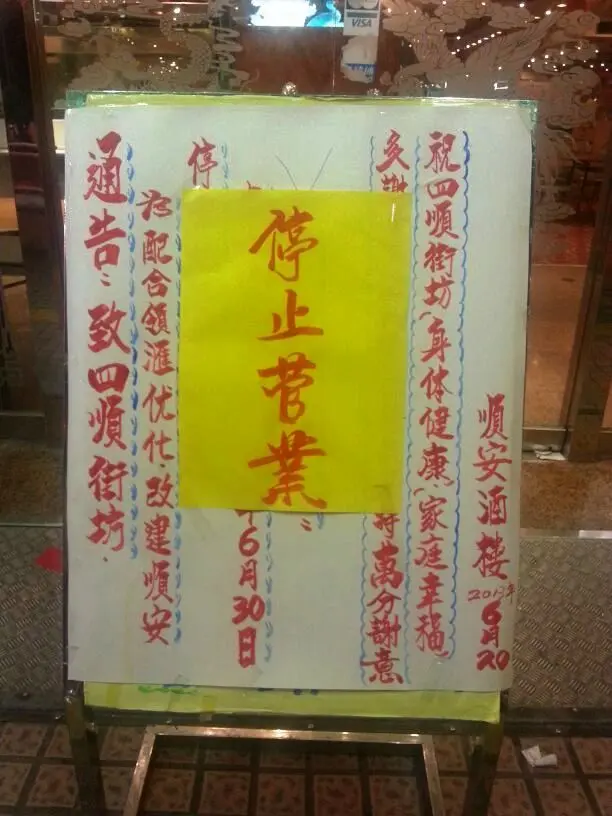 VISA
通告：致四順街坊．
为配合領滙优化．改建順安
停
6月30日
停止营業
謝
萬分謝意
祝四順街坊(身体健康(家庭幸福
順安酒楼
2013年
6月20